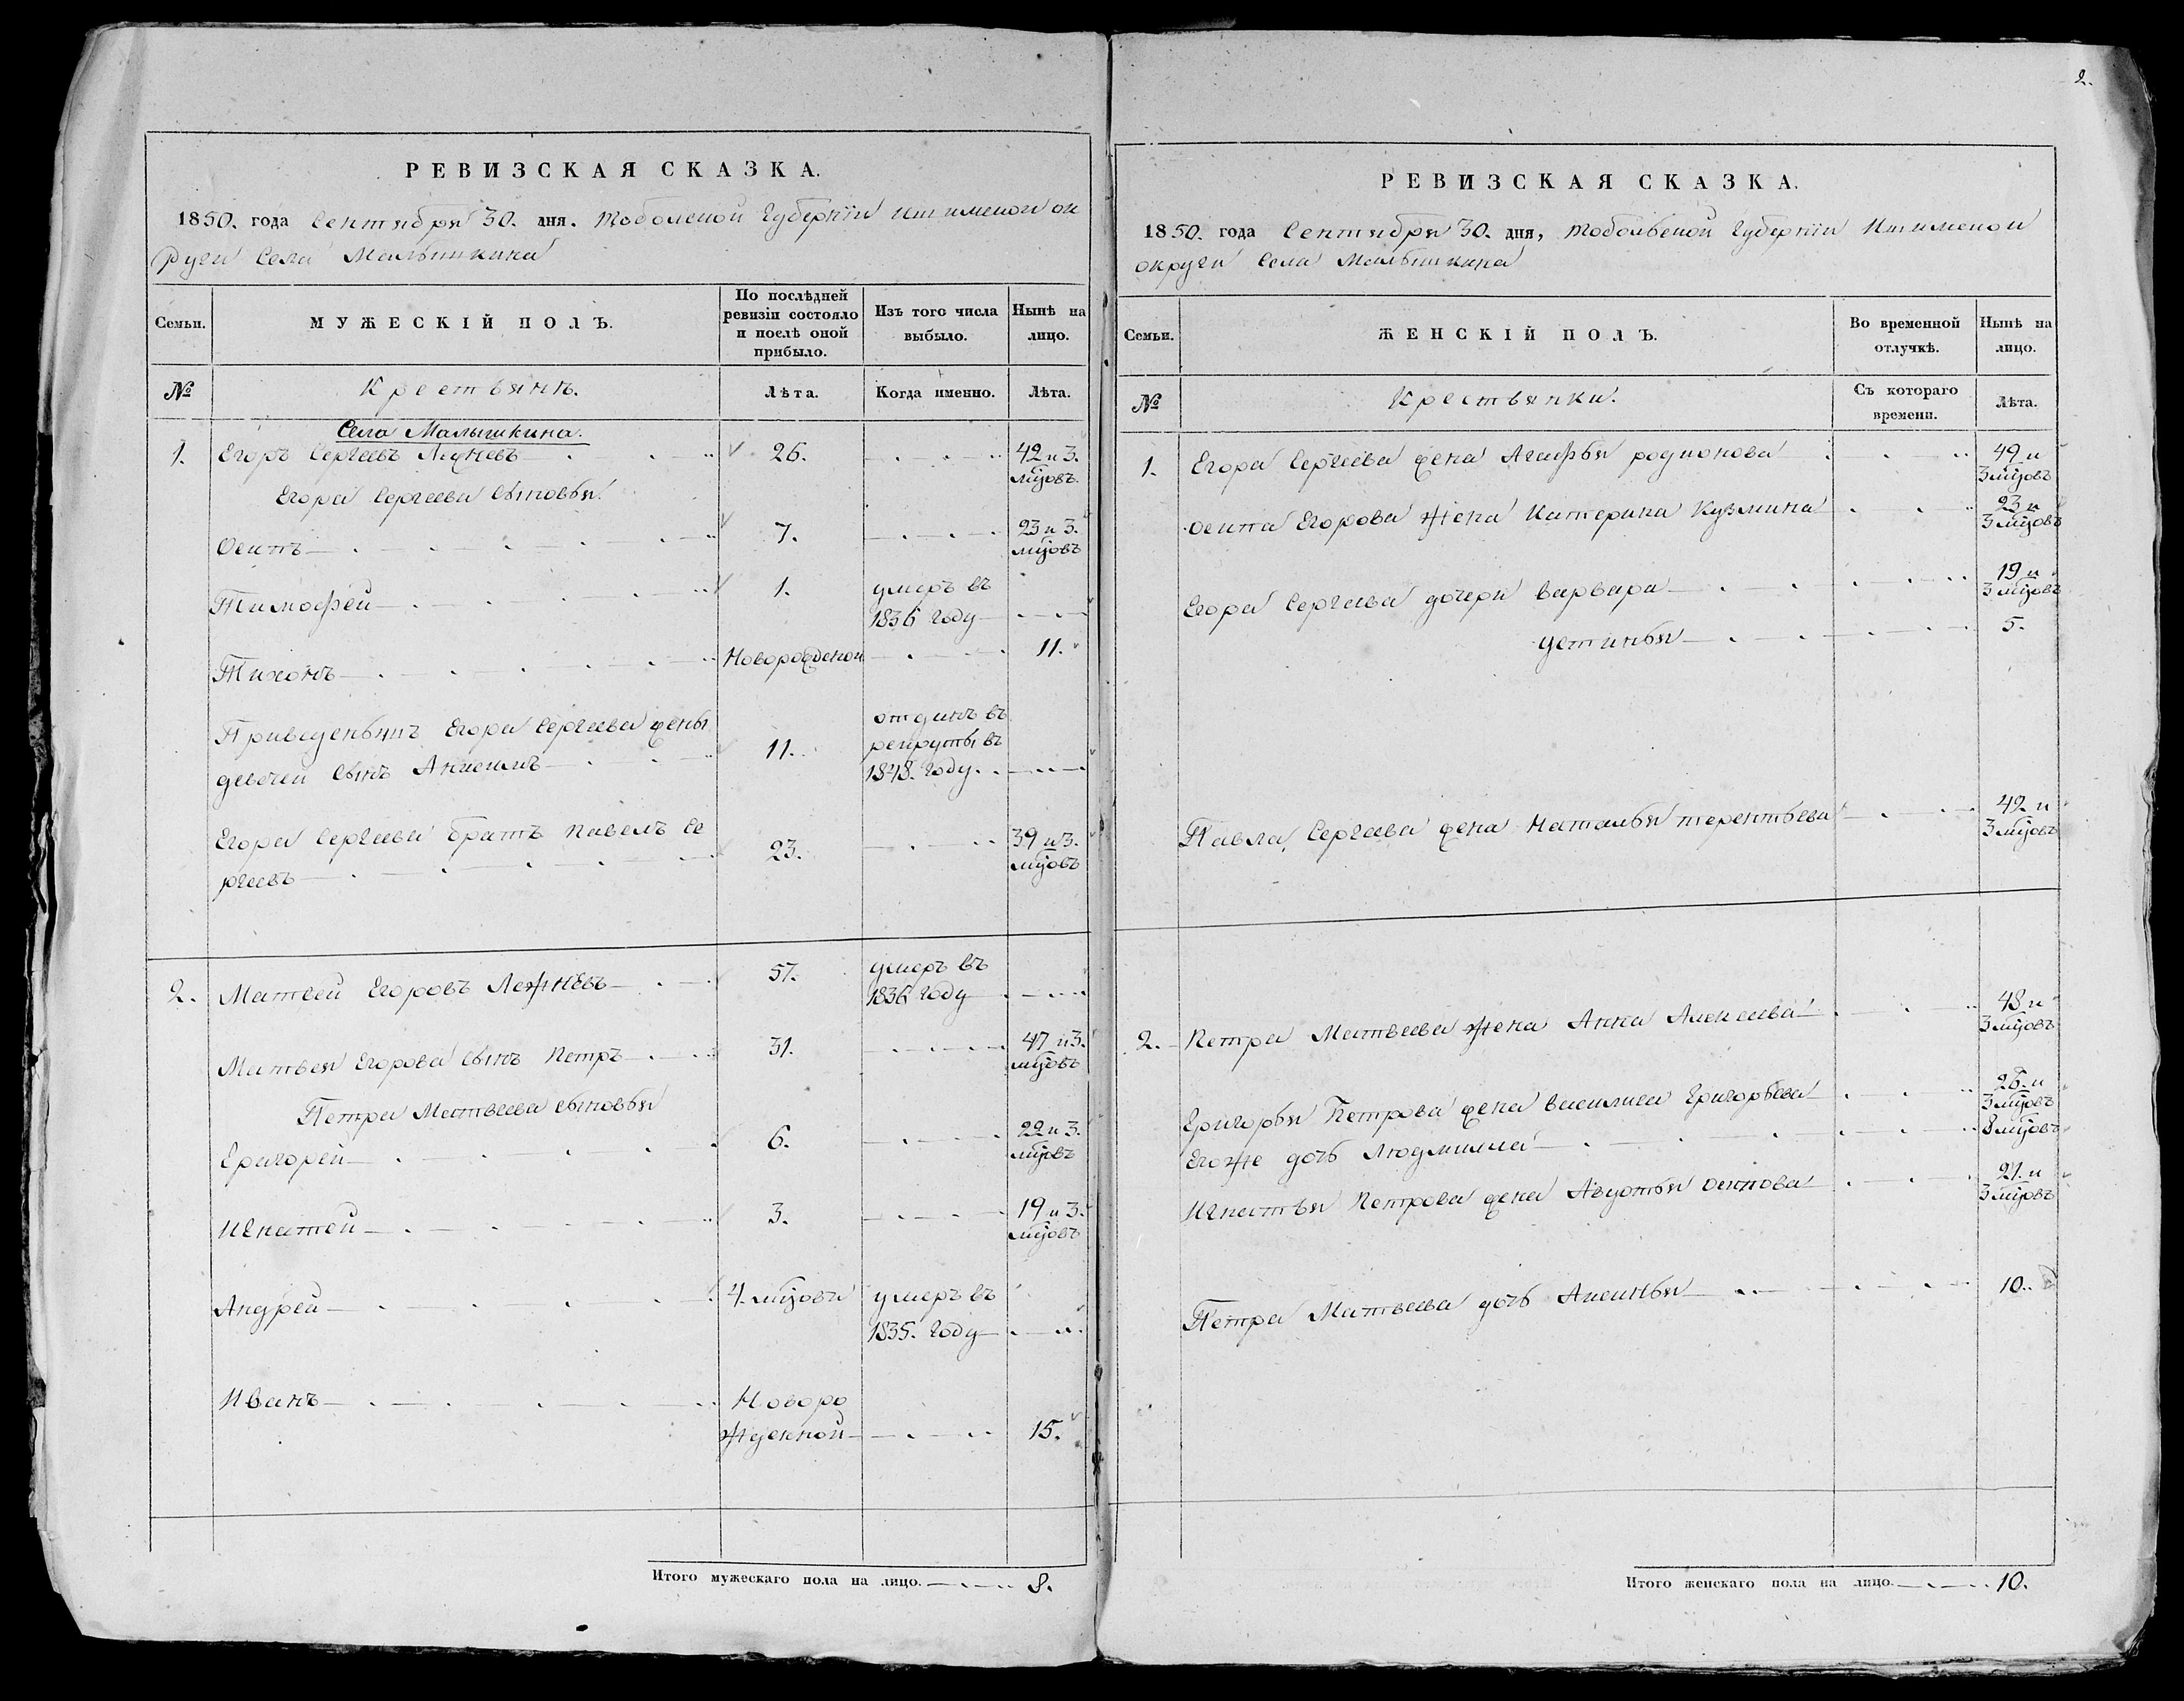 2.
РЕВИЗСКАЯ СКАЗКА.
1850. года Сентября 30. дня. Тобольской Губерніи Ишимской ок
Руги Села Малышкина
Семьи.
МУЖЕСКІЙ ПОЛЪ.
По послѣдней
ревизіи состояло
и послѣ оной
прибыло.
Изъ того числа
выбыло.
Нынѣ на
лицо.
№
Крестьянѣ.
Лѣта.
Когда именно.
Лѣта.
Села Малышкина.
1. Егоръ Сергѣевъ Лежневъ 26. 42 и 3.
мцовъ.
Егора Сергеева Сыновья:
Осипъ 7. 23 и 3.
мцовъ
Тимофей 1. умеръ въ
1836 году
Тихонъ Новорожденой 11.
Приведенышъ Егора Сергеева жены
девочей Сынъ Анисимъ 11. отданъ въ
рекруты въ
1848. году.
Егора Сергеева братъ Павелъ Се
ргеевъ 23. 39 и 3.
мцовъ
2. Матвей Егоровъ Лежнёвъ 57. умеръ въ
1836 году
Матвея Егорова Сынъ Петръ 31. 47 и 3.
мцовъ
Петра Матвеева сыновья
Григорей 6. 22 и 3.
мцовъ
Игнатей 3. 19 и 3.
мцовъ
Андрей 4. мцовъ умеръ въ
1835. году
Иванъ Новоро
жденной 15.
Итого мужескаго пола на лицо. 8.
РЕВИЗСКАЯ СКАЗКА.
1850. года Сентября 30. дня, Тобольской Губерніи Ишимской
округи Села Малышкина
Семьи.
ЖЕНСКІЙ ПОЛЪ.
Во временной
отлучкѣ.
Нынѣ на
лицо.
№
Крестьянки.
Съ котораго
времени.
Лѣта.
1. Егора Сергеева жена Агафья родионова 49 и
3 мцовъ
осипа Егорова жена Катерина Кузмина 23 и
3 мцовъ
Егора Сергеева дочери варвара 19 и
3 мцовъ
устинья 5.
Павла Сергеева жена Наталья терентьева 42 и
3 мцовъ
2. Петра Матвеева жена Анна Алексеева 48 и
3 мцовъ
Григорья Петрова жена василиса Григорьева 26. и
3 мцовъ
Егоже дочь Людмилла 8 мцовъ
Игнатья Петрова жена Авдотья осипова 21. и
3 мцовъ
Петра Матвеева дочь Аксинья 10.
Итого женскаго пола на лицо. 10.